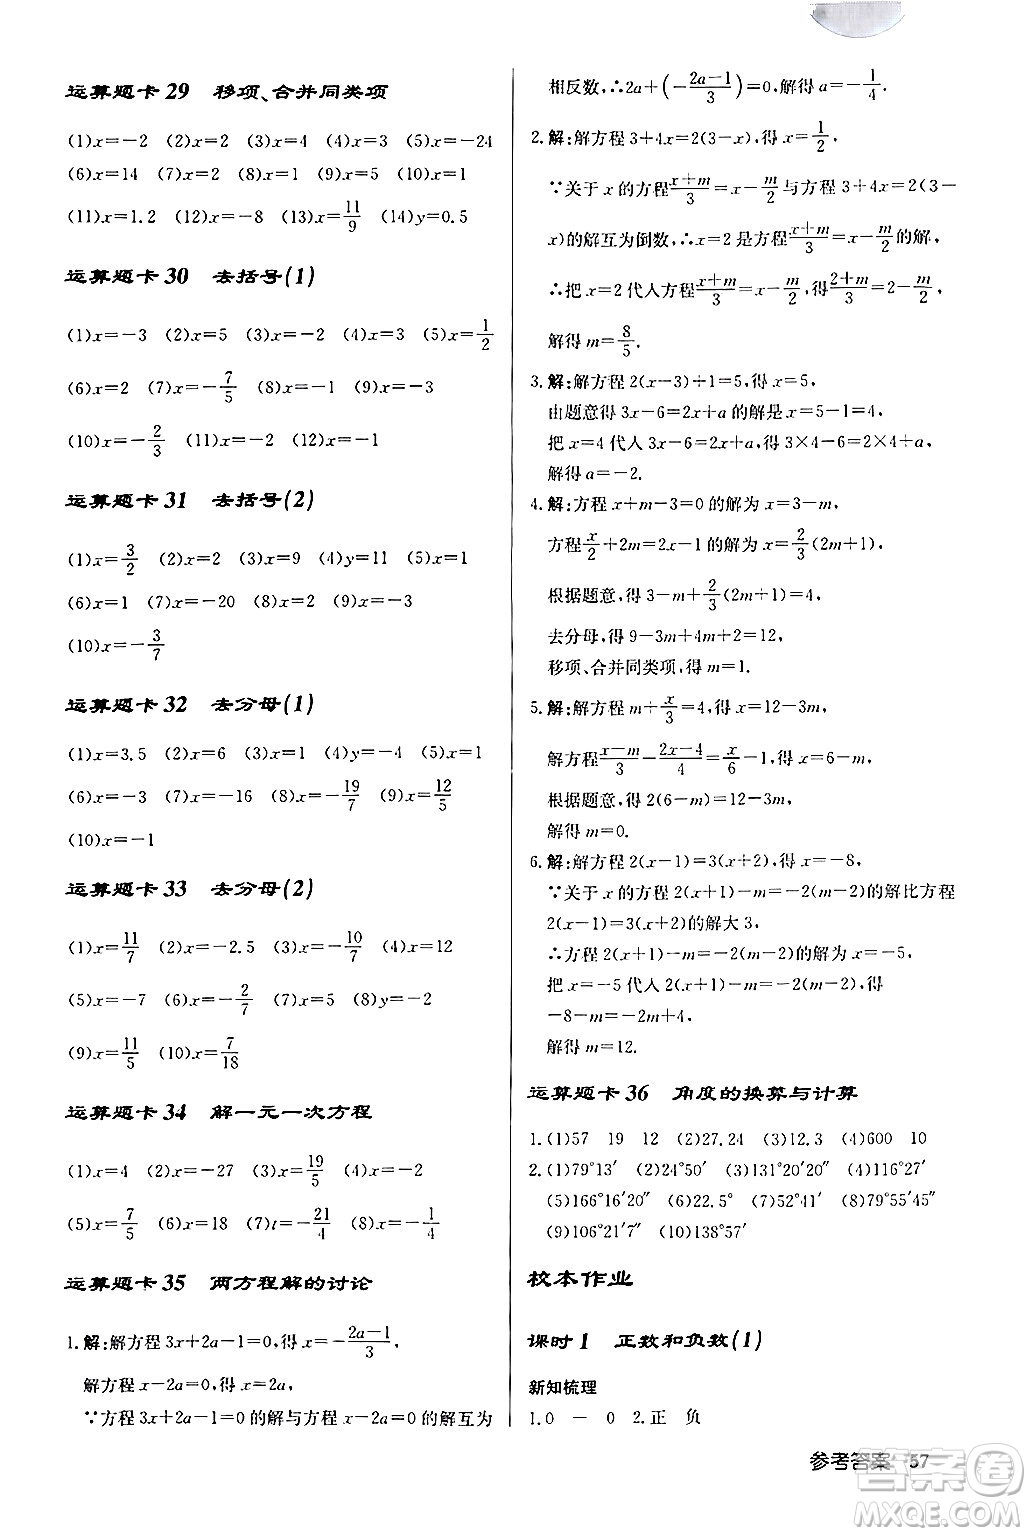 运算题卡 29 移项、合并同类项
(1)x=-2 (2)x=2 (3)x=4 (4)x=1 (5)x=-24
(6)x=14 (7)x=-2 (8)x=1 (9)x=5 (10)x=1
(11)x=1.2 (12)x=-8 (13)x=11/9 (14)y=0.5
运算题卡 30 去括号(1)
(1)x=-3 (2)x=5 (3)x=-2 (4)x=3 (5)x=1/2
(6)x=2 (7)x=-7/5 (8)x=-1 (9)x=-3
(10)x=-2/3 (11)x=-2 (12)x=-1
运算题卡 31 去括号(2)
(1)x=3/2 (2)x=2 (3)x=9 (4)y=11 (5)x=1
(6)x=1 (7)x=-20 (8)x=2 (9)x=-3
(10)x=-3/7
运算题卡 32 去分母(1)
(1)x=3.5 (2)x=6 (3)x=1 (4)y=-4 (5)x=1
(6)x=-3 (7)x=-16 (8)x=-19/7 (9)x=12/5
(10)x=-1
运算题卡 33 去分母(2)
(1)x=11/7 (2)x=-2.5 (3)x=-10/7 (4)x=12
(5)x=-7 (6)x=-2/7 (7)x=5 (8)x=-2
(9)x=11/5 (10)x=7/18
运算题卡 34 解一元一次方程
(1)x=4 (2)x=-27 (3)x=19/5 (4)x=1
(5)x=7/5 (6)x=18 (7)t=-21/4 (8)x=-1/4
运算题卡 35 两方程解的讨论
1.解:解方程 3x+2a-1=0,得 x=-(2a-1)/3.
解方程 x-2a=0,得 x=2a,
∵方程 3x+2a-1=0 的解与方程 x-2a=0 的解互为
相反数,∴2a+(-(2a-1)/3)=0,解得 a=-1/4.
2.解:解方程 3+4x=2(3-x),得 x=1/2.
∵关于 x 的方程(x+m)/3=x-m/2与方程 3+4x=2(3-
x)的解互为倒数,∴x=2 是方程(x+m)/3=x-m/2的解,
∴把 x=2 代人方程(x+m)/3=x-m/2,得(2+m)/3=2-m/2,
解得 m=8/5.
3.解:解方程 2(x-3)÷1=5,得 x=5,
由题意得 3x-6=2x+a 的解是 x=5-1=4,
把 x=4 代人 3x-6=2x+a,得 3×4-6=2×4÷a,
解得 a=-2.
4.解:方程 x+m-3=0 的解为 x=3-m,
方程x/2+2m=2x-1 的解为 x=2/3(2m+1),
根据题意,得 3-m+2/3(2m+1)=4,
去分母,得 9-3m+4m+2=12,
移项、合并同类项,得 m=1.
5.解:解方程 m+x/3=4,得 x=12-3m,
解方程(x-m)/3-(2x-4)/4=x/6-1,得 x=6-m,
根据题意,得 2(6-m)=12-3m,
解得 m=0.
6.解:解方程 2(x-1)=3(x+2),得 x=-8,
∵关于 x 的方程 2(x+1)-m=-2(m-2)的解比方程
2(x-1)=3(x+2)的解大 3,
∴方程 2(x+1)-m=-2(m-2)的解为 x=-5,
把 x=-5 代人 2(x+1)-m=-2(m-2),得
-8-m=-2m+4,
解得 m=12.
运算题卡 36 角度的换算与计算
1.(1)57 19 12 (2)27.24 (3)12.3 (4)600 10
2.(1)79°13′ (2)24°50′ (3)131°20′20″ (4)116°27′
(5)166°16′20″ (6)22.5° (7)52°57′ (8)79°55′45″
(9)106°21′7″ (10)138°57′
校本作业
课时 1 正数和负数(1)
新知梳理
1.0 - 0 2.正 负
参考答案 57
答案圈
MXQE.COM